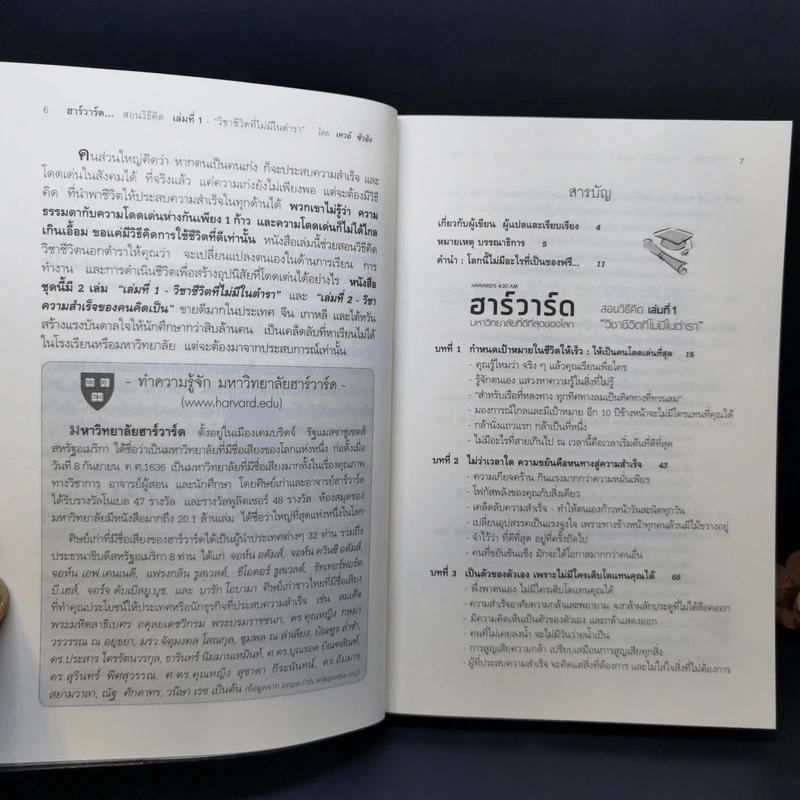 6 ฮาร์วาร์ด... สอนวิธีคิด เล่มที่ 1 - "วิชาชีวิตที่ไม่มีในตำรา" โดย เหวย์ ซิ่วอิง
คนส่วนใหญ่คิดว่า หากตนเป็นคนเก่ง ก็จะประสบความสำเร็จ และ
โดดเด่นในสังคมได้ ที่จริงแล้ว แค่ความเก่งยังไม่เพียงพอ แต่จะต้องมีวิธี
คิด ที่นำพาชีวิตให้ประสบความสำเร็จในทุกด้านได้ พวกเขาไม่รู้ว่า ความ
ธรรมดากับความโดดเด่นห่างกันเพียง 1 ก้าว และความโดดเด่นก็ไม่ได้ไกล
เกินเอื้อม ขอแค่มีวิธีคิดการใช้ชีวิตที่ดีเท่านั้น หนังสือเล่มนี้ช่วยสอนวิธีคิด
วิชาชีวิตนอกตำราให้คุณว่า จะเปลี่ยนแปลงตนเองในด้านการเรียน การ
ทำงาน และการดำเนินชีวิตเพื่อสร้างอุปนิสัยที่โดดเด่นได้อย่างไร หนังสือ
ชุดนี้มี 2 เล่ม "เล่มที่ 1 - วิชาชีวิตที่ไม่มีในตำรา" และ "เล่มที่ 2 - วิชา
ความสำเร็จของคนคิดเป็น" ขายดีมากในประเทศ จีน เกาหลี และไต้หวัน
สร้างแรงบันดาลใจให้นักศึกษากว่าสิบล้านคน เป็นเคล็ดลับที่หาเรียนไม่ได้
ในโรงเรียนหรือมหาวิทยาลัย แต่จะต้องมาจากประสบการณ์เท่านั้น
- ทำความรู้จัก มหาวิทยาลัยฮาร์วาร์ด -
(www.harvard.edu)
มหาวิทยาลัยฮาร์วาร์ด ตั้งอยู่ในเมืองเคมบริดจ์ รัฐแมสซาชูเซตส์
สหรัฐอเมริกา ได้ชื่อว่าเป็นมหาวิทยาลัยที่มีชื่อเสียงของโลกแห่งหนึ่ง ก่อตั้งเมื่อ
วันที่ 8 กันยายน ค.ศ.1636 เป็นมหาวิทยาลัยที่มีชื่อเสียงมากทั้งในเรื่องคุณภาพ
ทางวิชาการ อาจารย์ผู้สอน และนักศึกษา โดยศิษย์เก่าและอาจารย์ฮาร์วาร์ด
ได้รับรางวัลโนเบล 47 รางวัล และรางวัลพูลิตเซอร์ 48 รางวัล ห้องสมุดของ
มหาวิทยาลัยมีหนังสือมากถึง 20.1 ล้านเล่ม ได้ชื่อว่าใหญ่ที่สุดแห่งหนึ่งในโลก
ศิษย์เก่าที่มีชื่อเสียงของฮาร์วาร์ดได้เป็นผู้นำประเทศต่างๆ 32 ท่าน รวมถึง
ประธานาธิบดีสหรัฐอเมริกา 8 ท่าน ได้แก่ จอห์น อดัมส์, จอห์น ควินซี อดัมส์,
จอห์น เอฟ.เคนเนดี, แฟรงกลิน รูสเวลต์, ธีโอดอร์ รูสเวลต์, รัทเทอร์ฟอร์ด
บี.เฮส์, จอร์จ ดับเบิลยู.บุช, และ บารัก โอบามา ศิษย์เก่าชาวไทยที่มีชื่อเสียง
ที่ทำคุณประโยชน์ให้ประเทศหรือนักธุรกิจที่ประสบความสำเร็จ เช่น สมเด็จ
พระมหิตลาธิเบศร อดุลยเดชวิกรม พระบรมราชชนก, ดร.คุณหญิง กษมา
วรวรรณ ณ อยุธยา, มรว.จัตุมงคล โสณกุล, ชุมพล ณ ลำเลียง, บัณฑูร ล่ำซำ,
ดร.ประสาร ไตรรัตน์วรกุล, ธารินทร์ นิมมานเหมินท์, ศ.ดร.บุณรอด บิณฑสัณฑ์,
ดร.สุรินทร์ พิศสุวรรณ, ศ.ดร.คุณหญิง สุชาดา กีระนันทน์, ดร.อัมมาร
สยามวาลา, ณัฐ ศักดาทร, วนิษา เรซ เป็นต้น (ข้อมูลจาก https://th.wikipedia.org)
7
สารบัญ
เกี่ยวกับผู้เขียน ผู้แปลและเรียบเรียง 4
หมายเหตุ บรรณาธิการ 5
คำนำ : โลกนี้ไม่มีอะไรที่เป็นของฟรี... 11
HARVARD'S 4:30 A.M.
ฮาร์วาร์ด สอนวิธีคิด เล่มที่ 1
มหาวิทยาลัยที่ดีที่สุดของโลก "วิชาชีวิตที่ไม่มีในตำรา"
บทที่ 1 กำหนดเป้าหมายในชีวิตให้เร็ว : ให้เป็นคนโดดเด่นที่สุด 15
- คุณรู้ไหมว่า จริง ๆ แล้วคุณเรียนเพื่อใคร
- รู้จักตนเอง แสวงหาความรู้ในสิ่งที่ไม่รู้
- "สำหรับเรือที่หลงทาง ทุกทิศทางลมเป็นทิศทางที่ทวนลม"
- มองการณ์ไกลและมีเป้าหมาย อีก 10 ปีข้างหน้าจะไม่มีใครแทนที่คุณได้
- กล้านั่งแถวแรก กล้าเป็นที่หนึ่ง
- ไม่มีอะไรที่สายเกินไป ณ เวลานี้คือเวลาเริ่มต้นที่ดีที่สุด
บทที่ 2 ไม่ว่าเวลาใด ความขยันคือหนทางสู่ความสำเร็จ 43
- ความเกียจคร้าน กินแรงมากกว่าความหมั่นเพียร
- โฟกัสพลังของคุณกับสิ่งเดียว
- เคล็ดลับความสำเร็จ - ทำให้ตนเองก้าวหน้าวันละนิดทุกวัน
- เปลี่ยนอุปสรรคเป็นแรงจูงใจ เพราะทางข้างหน้าทุกคนล้วนมีไม้ขวางอยู่
- จำไว้ว่า ที่ดีที่สุด อยู่ที่ครั้งถัดไป
- คนที่ขยันขันแข็ง มักจะได้โอกาสมากกว่าคนอื่น
บทที่ 3 เป็นตัวของตัวเอง เพราะไม่มีใครเติบโตแทนคุณได้ 68
- พึ่งพาตนเอง ไม่มีใครเติบโตแทนคุณได้
- ความสำเร็จอาศัยความกล้าและพยายาม จงกล้าผลักประตูที่ไม่ได้ล็อคออก
- มีความคิดเห็นที่เป็นของตัวเอง และกล้าแสดงออก
- คนที่ไม่เคยลงน้ำ จะไม่มีวันว่ายน้ำเป็น
- การสูญเสียความกล้า เปรียบเสมือนการสูญเสียทุกสิ่ง
- ผู้ที่ประสบความสำเร็จ จะคิดแต่สิ่งที่ต้องการ และไม่ใส่ใจสิ่งที่ไม่ต้องการ